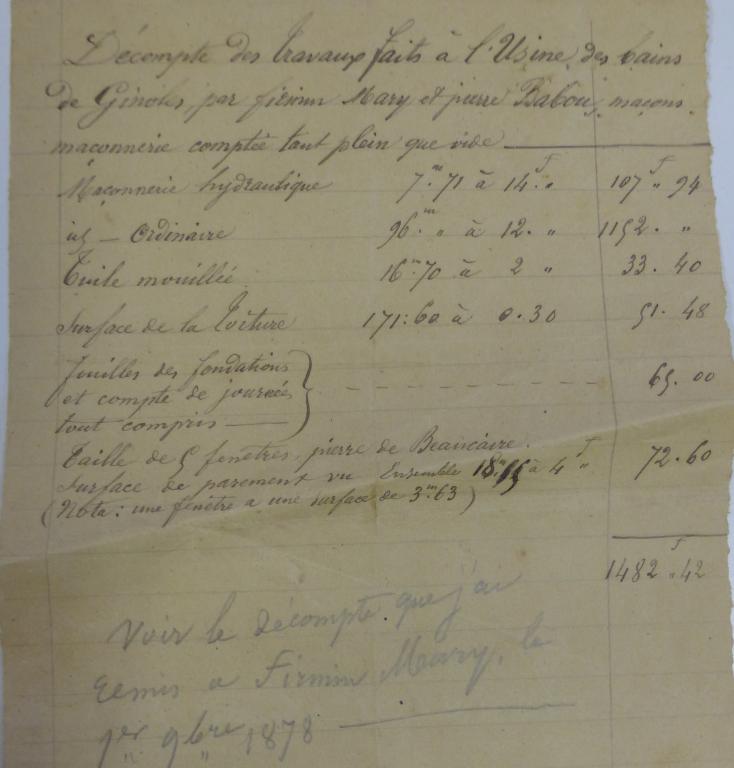 Décompte des travaux faits à l'Usine des bains
de Ginoles, par firimin Mary et pierre Babou, maçons
maçonnerie comptée tant plein que vide
Maçonnerie hydraulique 7.m 71 à 14.f " 107 f " 94
id — Ordinaire 96.m " à 12. " 1152. "
Tuile mouillée 16m.70 à 2 " 33. 40
Surface de la Toiture 171:60 à 0.30 51. 48
fouilles des fondations
et compte de journées
tout compris 65. 00
Taille de 5 fenêtres, pierre de Beaucaire.
Surface de parement vu Ensemble 18.m15 à 4 f " 72.60
(Nota: une fenêtre a une surface de 3.m63)
1482 f " 42
Voir le décompte que j'ai
remis a Firmin Mary, le
1er 9bre 1878